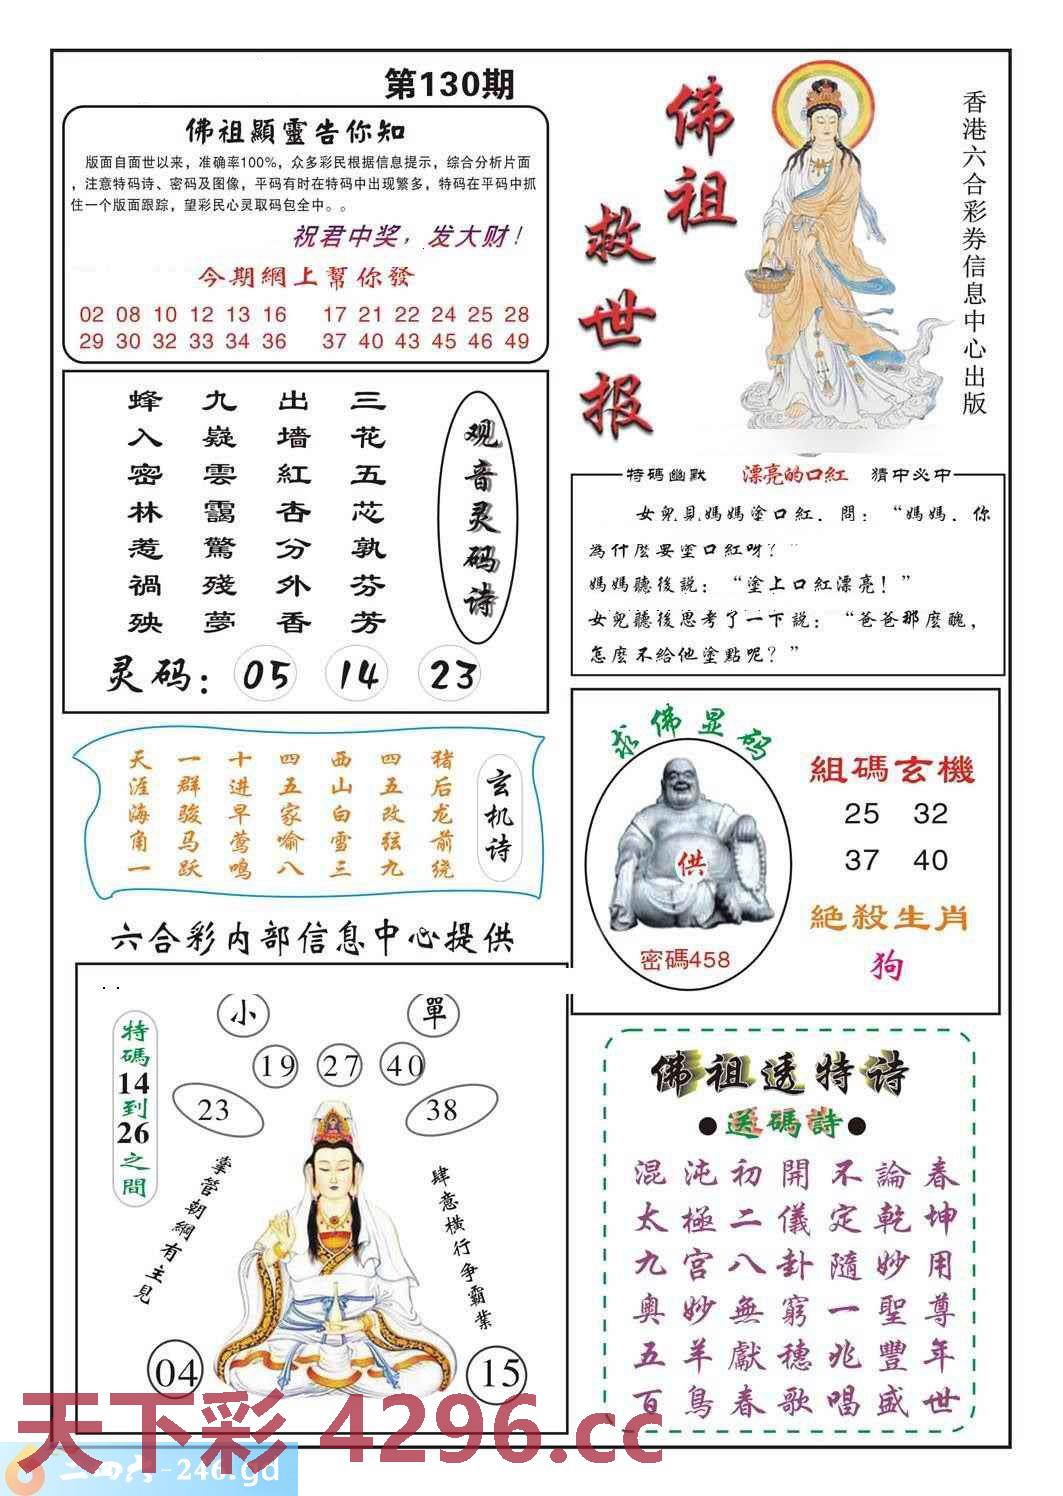 第130期
佛祖顯靈告你知
版面自面世以来，准确率100%，众多彩民根据信息提示，综合分析片面
，注意特码诗、密码及图像，平码有时在特码中出现繁多，特码在平码中抓
住一个版面跟踪，望彩民心灵取码包全中。。
祝君中奖，发大财！
今期網上幫你發
02 08 10 12 13 16 17 21 22 24 25 28
29 30 32 33 34 36 37 40 43 45 46 49
佛祖
救世报
香港六合彩券信息中心出版
观音灵码诗
三花五芯孰芬芳
出墙紅杏分外香
九嶷雲靄驚殘夢
蜂入密林惹禍殃
灵码：05 14 23
特碼幽默 漂亮的口紅 猜中必中
女兒見媽媽塗口紅．問：“媽媽．你
為什麼要塗口紅呀？”
媽媽聽後説：“塗上口紅漂亮！”
女兒聽後思考了一下説：“爸爸那麼醜，
怎麼不給他塗點呢？”
玄机诗
猪后龙前绕
四五改弦九
西山白雪三
四五家喻八
十进早莺鸣
一群骏马跃
天涯海角一
求佛显码
供
密碼458
組碼玄機
25 32
37 40
絕殺生肖
狗
六合彩内部信息中心提供
特碼14到26之間
小 單
19 27 40
23 38
掌管朝綱有主見
肆意橫行争霸業
04 15
佛祖透特诗
●送碼詩●
混沌初開不論春
太極二儀定乾坤
九宮八卦隨妙用
奥妙無窮一聖尊
五羊獻穗兆豐年
百鳥春歌唱盛世
天下彩 4296.cc
二四六-246.gd